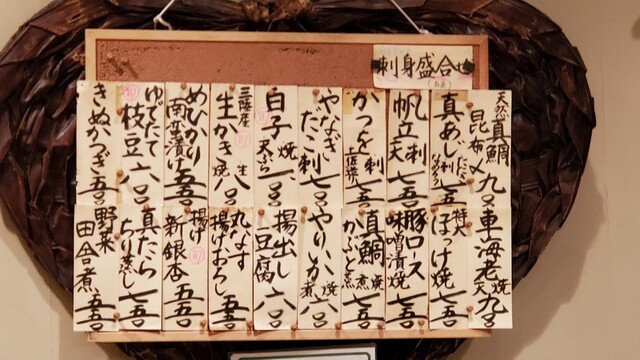 刺身盛合せ
天然真鯛昆布〆 九〇
真あじ 刺 たたき なめろう 七五〇
帆立 刺 天 七五〇
かつを刺 土佐造り
やなぎだこ刺 七〇
白子 焼 天ぷら
三陸産 生かき 生 焼 八〇
めひかり南蛮漬け 五五〇
ゆでたて枝豆 六〇
きぬかつぎ 五〇
車海老 焼 天 九〇
特大 ほっけ焼 七五〇
豚ロース味噌漬焼 七五〇
真鯛かぶと 焼 煮 七五〇
やりいか 焼 煮 六〇
揚出し豆腐 六〇
丸なす揚げおろし 五五〇
揚げ新銀杏 五五〇
真だらちり蒸し 七五〇
野菜田舎煮 五五〇